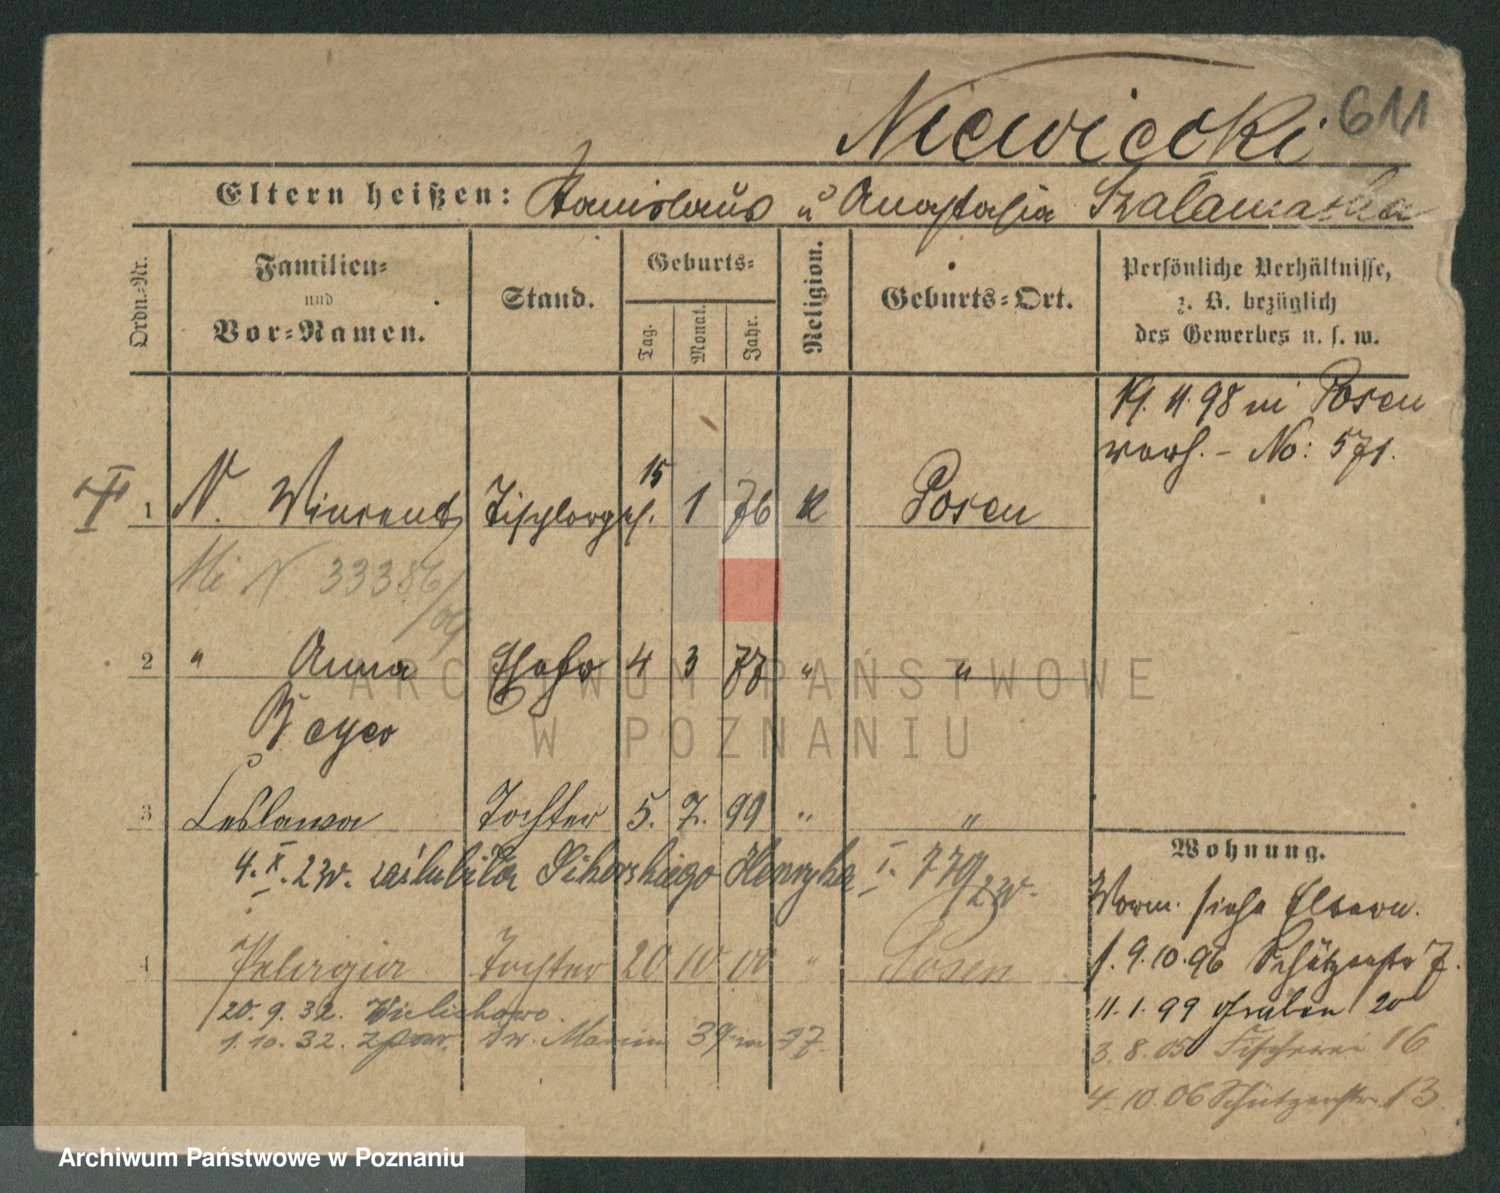 Niewiecki 611
Eltern heißen: Stanislaus u Anastasia
Ordn.-Nr.
Familien- und Vor-Namen.
Stand.
Geburts-
Tag. Monat. Jahr.
Religion.
Geburts-Ort.
Persönliche Verhältnisse, z. B. bezüglich des Gewerbes u. s. w.
11. 98 in Posen
verh. - No: 571.
1 N. Vincent Tischlerges. 15 1 76 K Posen
N 33386/09
2 " Anna Ehefr 4 3 77 " "
Beyer
3 Leslawa Tochter 5. 7. 99 " "
4. X. 23r. zaślubiła Sikorskiego Henryka I. 779/23r.
4 Pelagia Tochter 20 10 00 " Posen
20. 9. 32. Wielichowo.
1. 10. 32. z pow. św. Marcin 39 m 37.
Wohnung.
Vorm. siehe Eltern.
1. 9. 10. 96 Schützenstr 7.
11. 1. 99 Graben 20
3. 8. 05 Fischerei 16
4. 10. 06 Schützenstr. 13
ARCHIWUM PAŃSTWOWE
W POZNANIU
Archiwum Państwowe w Poznaniu